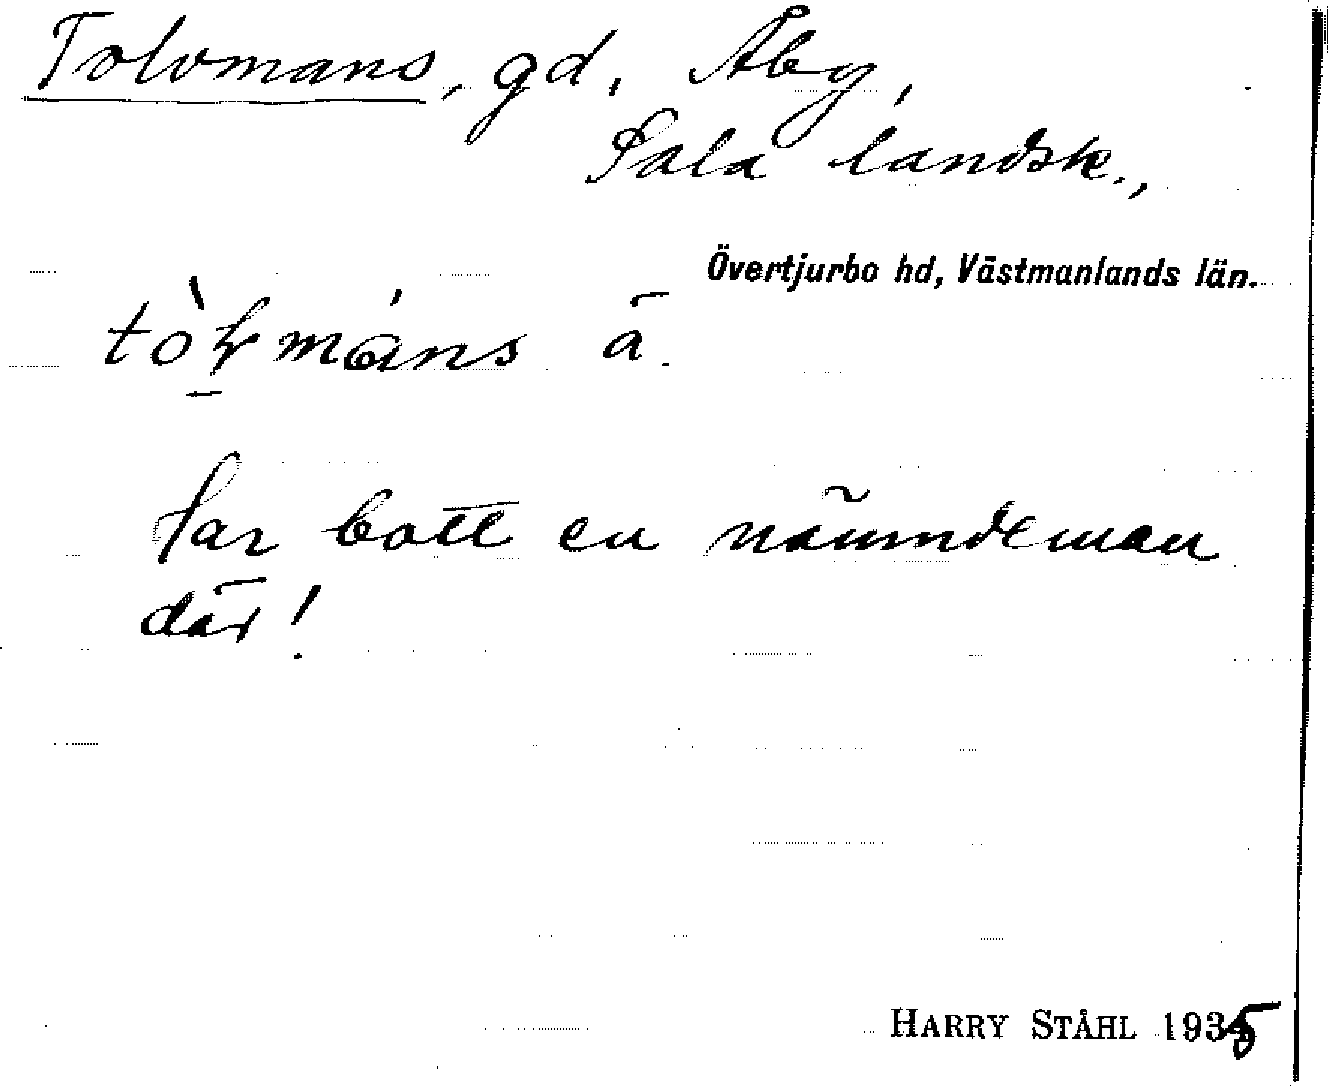 Tolvmans, gd, Åby,
Sala landsk.,
Övertjurbo hd, Västmanlands län.
ā.
Har bott en nämndeman
där!
HARRY STÅHL 1935